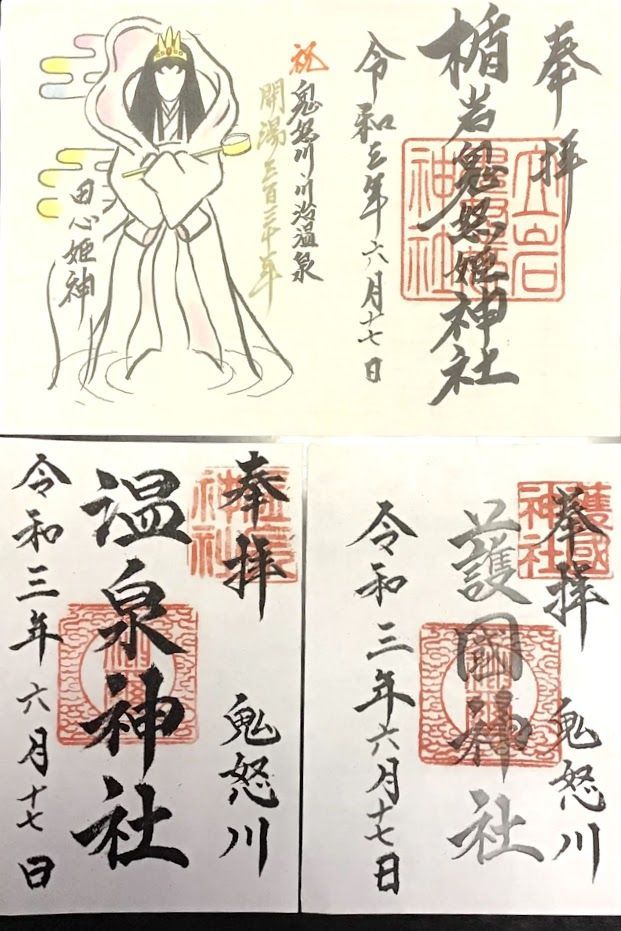 奉拝
楯岩鬼怒姫神社
令和三年六月十七日
祝
鬼怒川・川治温泉
開湯三百三十年
田心姫神
奉拝
鬼怒川
温泉神社
令和三年六月十七日
温泉
神社
奉拝
鬼怒川
護國神社
令和三年六月十七日
護國
神社